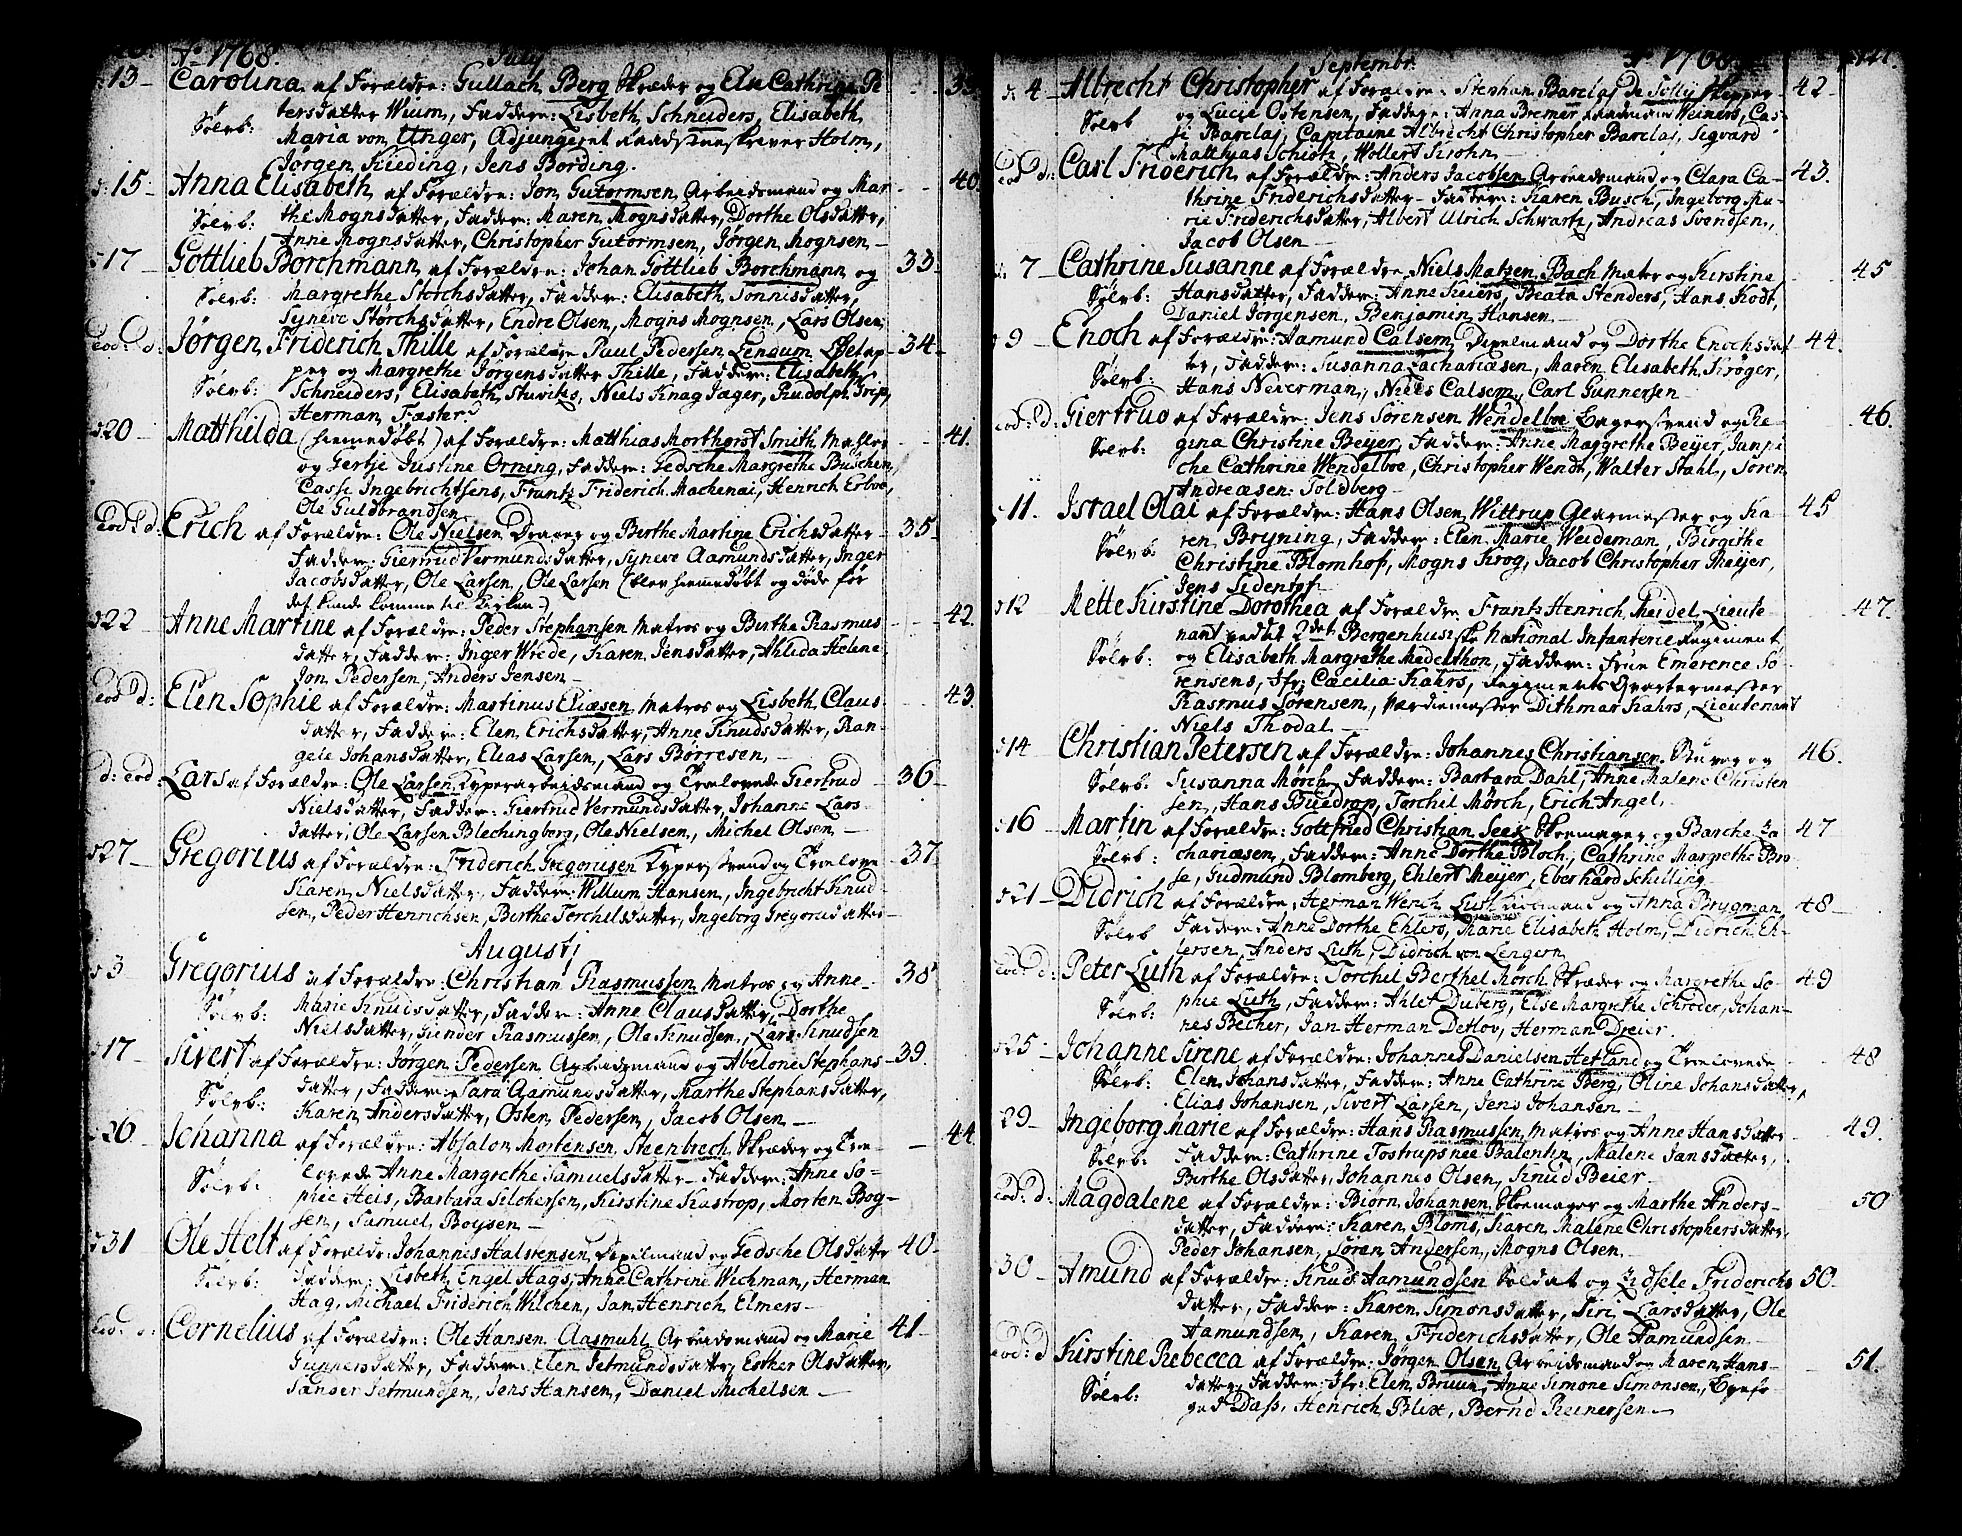 Ao 1768. July
13 - Carolina af Forældre: Gullach Berg Skræder og Else Cathrine Pe
Sølvb: tersdatter Wium, Faddere: Lisbeth Schneiders, Elisabeth
Maria von Unger, Adjungeret Raadstueskriver Holm,
Jørgen Kieding, Jens Bording.
15 - Anna Elisabeth af Forældre: Jon Gutormsen Arbeidsmand og Mar- 40
Sølvb: the Mognsdatter, Faddere: Maren Mognsdatter, Dorthe Olsdatter,
Anne Mognsdatter, Christopher Gutormsen, Jørgen Mognsen -
17 - Gottlieb Borchmann af Forældre: Johan Gottlieb Borchmann og 33
Sølvb: Margrethe Storchsdatter, Faddere: Elisabeth Tønnisdatter,
Syneve Størchsdatter, Endre Olsen, Mogns Mognsen, Lars Olsen
eod: d: Jørgen Friderich Thille af Forældre Paul Pedersen Lensum 34
Sølvb: per og Margrethe Jørgensdatter Thille, Faddere: Elisabeth
Schneiders, Elisabeth Stuvitz, Niels Knag Jæger, Rudolph Trip,
Herman Fæster
20 - Matthilda (hiemedøbt) af Forældre: Matthias Morthorst Smith 41.
og Gertje Justine Orning, Faddere: Gedsche Margrethe Buschen,
Casse Ingebrichtsens, Frantz Friderich Machenai, Henrich Erboe,
Ole Guldbrandsen
eod: d: Erich af Forældre: Ole Nielsen Drager og Birthe Martine Erichsdatter 35
Faddere: Giertrud Vermundsdatter, Syneve Aamundsdatter, Inger
Jacobsdatter, Ole Larsen, Ole Larsen (blev hiemedøbt og døde før
det kunde komme til Kirken)
22 Anne Martine af Forældre: Peder Stephansen Matros og Birthe Rasmus 42
datter, Faddere: Inger Wrede, Karen Jensdatter, Ahlida Helene
Jon Pedersen, Anders Jensen -
eod d: Elen Sophie af Forældre: Martinus Eliæsen Matros og Lisbeth Claus 43
datter, Faddere: Elen Erichsdatter, Anne Knudsdatter, Ran-
gele Johansdatter, Elias Larsen, Lars Børresen -
d: eod Lars af Forældre: Ole Larsen Kyperarbeidsmand og Trolovede Giertrud 36
Nielsdatter, Faddere: Giertrud Vermundsdatter, Johanne Lars-
datter, Ole Larsen Blechingberg, Ole Nielsen, Michel Olsen -
27 - Gregorius af Forældre: Friderich Gregoriisen Kypersvend og Trolove 37
Karen Nielsdatter, Faddere: Willum Hansen, Ingebricht Knud-
sen, Peder Henrichsen, Birthe Torchelsdatter, Ingeborg Gregoriidatter -
Augustj
3 Gregorius af Forældre: Christian Rasmussen Matros og Anne 38
Sølvb: Marie Knudsdatter, Faddere: Anne Clausdatter, Dorthe
Nielsdatter, Gunder Rasmussen, Ole Knudsen, Lars Knudsen
17 - Sivert af Forældre: Jørgen Pedersen Arbeidsmand og Abelone Stephans 39
Sølvb: datter, Faddere: Sara Aamundsdatter, Marthe Stephansdatter,
Karen Andersdatter, Osten Pedersen, Jacob Olsen -
26 Johanna af Forældre: Absalon Mortensen Steenbrech Skræder og Tro- 44
Sølvb: lovede Anne Margrethe Samuelsdatter - Faddere: Anne So-
phie Heis, Barbara Silchersen, Kirstine Kastrop, Morten Bog-
sen, Samuel Boysen -
31 Ole Helt af Forældre: Johannes Halstensen Dexelmand og Gedsche Olsdatter 40
Sølvb: Faddere: Lisbeth Engel Hags, Anne Cathrine Wichman, Herman
Hag, Michael Friderich Wilchen, Jan Henrich Elmers -
Cornelius af Forældre: Ole Hansen Aasmuhl Arbeidsmand og Marie 41
Gunnersdatter, Faddere: Elen Setmundsdatter, Esther Olsdatter,
Sanser Setmundsen, Jens Hansen, Daniel Michelsen -
Septembr. Ao 1768
4 - Albrecht Christopher af Forældre: Stephan Barclaj de Tolly Skipper 42
Sølvb og Lucie Ostensen, Faddere: Anna Bremer Weiners, Cas-
se Barclaj, Capitaine Albrecht Christopher Barclaj, Sigvard
Matthias Schiøtz, Wollert Krohn
eod d: Carl Friderich af Forældre: Anders Jacobsen Arbeidsmand og Clara Ca- 43.
thrine Friderichsdatter - Faddere: Karen Busch, Ingeborg Ma-
rie Friderichsdatter, Albert Ulrich Schwartz, Andreas Svendsen,
Jacob Olsen -
7 - Cathrine Susanne af Forældre Niels Matzen Bach Mæter og Kirstine 45
Sølvb: Hansdatter, Faddere: Anne Keiers, Beata Stenders, Hans Kodt,
Daniel Jørgensen, Benjamin Hansen -
9 - Enoch af Forældre: Aamund Calsem Dexelmand og Dorthe Enochsdat 44.
Sølvb: ter, Faddere: Susanna Zachariæsen, Maren Elisabeth Krøger,
Hans Neverman, Niels Calsem, Carl Gunnersen -
eod: d: Giertrud af Forældre: Jens Sørensen Wendelboe Bagersvend og Re- 46.
Sølvb: gina Christine Beyer, Faddere: Anne Margrethe Beijer, Janni
che Cathrine Wendelboe, Christopher Wendt, Walter Stahl, Søren
Andreæsen Toldberg
11. Israel Olai af Forældre: Hans Olsen Wittrup Glarmester og Ka- 45
Sølvb: ren Bryning, Faddere: Elen Marie Weideman, Birgithe
Christine Blomhof, Mogns Krog, Jacob Christopher Meijer,
Jens Sidentopf
12 Mette Kirstine Dorothea af Forældre Frantz Henrich Reidel Lieute 47.
nant ved det 2det Bergenhusiske National Infanterie Regiment
Sølvb: og Elisabeth Margrethe Medelthon, Faddere: Frue Emerence Sø-
rensens, Jfr: Cæcilia Kahrs, Regiments Qvarteermester
Rasmus Sørensen, Værdiemester Dithmar Kahrs, Lieutenant
Niels Thodal -
14 Christian Petersen af Forældre: Johannes Christiansen Stuver og 46.
Sølvb: Susanna Mørch, Faddere: Barbara Dahl, Anne Malene Christen
sen, Hans Buedrop, Torchil Mørch, Erich Angel -
16 Martin af Forældre: Gottfried Christian Seex Skomager og Barche Za 47
Sølvb: chariæsen, Faddere: Anne Dorthe Bloch, Cathrine Margrethe Bro-
se, Gudmund Blomberg, Ehlert Meijer, Eberhard Schilling -
21 - Didrich af Forældre: Herman Werich Luth og Anna Brygman 48
Sølvb Faddere: Anne Dorthe Ehlers, Marie Elisabeth Holm, Didrich Eh-
lersen, Anders Luth, Didrich von Lengern
eod: d: Peter Luth af Forældre: Torchel Berthel Mørch Skræder og Margrethe So- 49
Sølvb: phie Luth, Faddere: Ahlet Duberg, Else Margrethe Schrøder, Johan-
nes Becher, Jan Herman Detlov, Herman Dreier
25 - Johanne Sirene af Forældre: Johannes Danielsen Hetland og Trolovede 48
Sølvb: Elen Johansdatter, Faddere: Anne Cathrine Berg, Oline Johansdatter,
Elias Johansen, Sivert Larsen, Jens Johansen -
29 - Ingeborg Marie af Forældre: Hans Rasmussen Matros og Anne Hansdatter 49.
Sølvb: Faddere: Cathrine Tostrups nee Balentin, Malene Jansdatter,
Birthe Olsdatter, Johannes Olsen, Knud Beier -
eod: d: Magdalene af Forældre: Biørn Johansen Skomager og Marthe Anders- 50
datter, Faddere: Karen Bloms, Karen Malene Christophersdatter,
Peder Johansen, Søren Andersen, Mogns Olsen.
30 - Amund af Forældre: Knud Aamundsen Soldat og Zidsele Friderichs 50.
datter, Faddere: Karen Simonsdatter, Siri Larsdatter, Ole
Aamundsen, Karen Friderichsdatter, Ole Aamundsen -
eod: d Kirstine Rebecca af Forældre: Jørgen Olsen Arbeidsmand og Maren Hans- 51.
Sølvb: datter, Faddere: Jfr: Elen Bruun, Anne Simone Simonsen, Byefo
ged Dass, Henrich Blix, Bernd Reinersen -